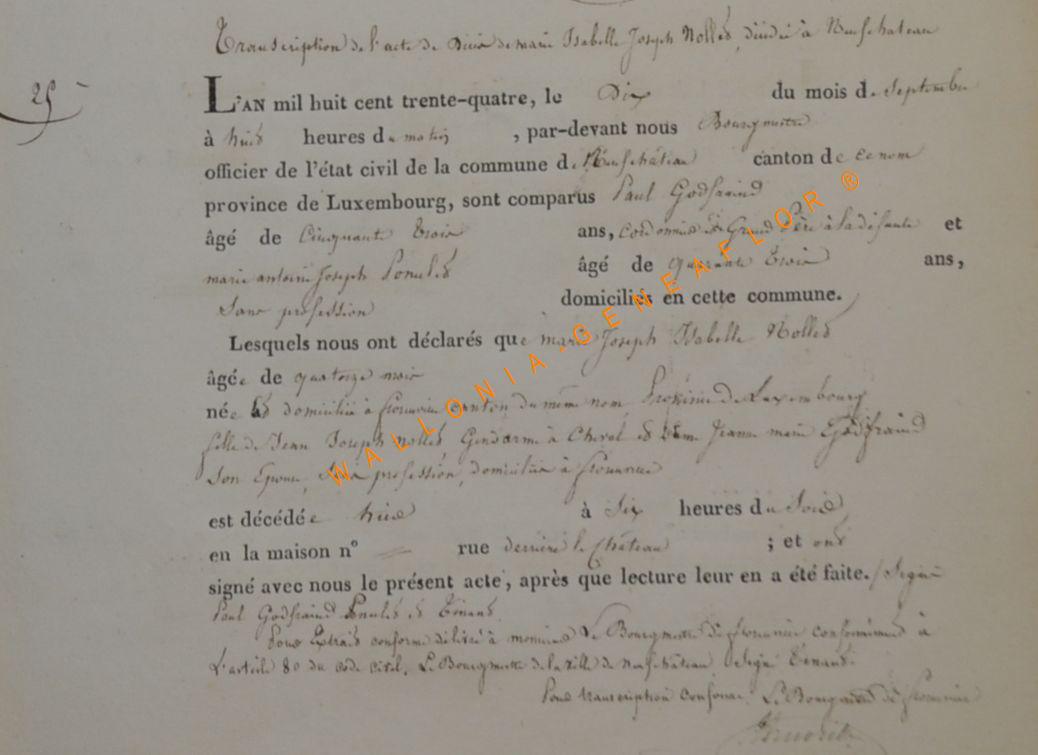 Transcription de l'acte de Décès de marie Isabelle Joseph Nollet, décédée à Neufchateau
25
L'AN mil huit cent trente-quatre, le Dix du mois de Septembre
à huit heures du matin, par-devant nous Bourgmestre
officier de l'état civil de la commune de Neufchâteau canton de ce nom
province de Luxembourg, sont comparus Paul Godfraind
âgé de Cinquante trois ans, cordonnier et Grand Père à la défunte et
marie antoine Joseph âgé de quarante trois ans,
Sans profession domiciliés en cette commune.
Lesquels nous ont déclarés que marie Joseph Isabelle Nollet
âgée de quatorze mois
née et domiciliée à canton du même nom Province de Luxembourg
fille de Jean Joseph nollet Gendarme à Cheval et de Jeanne marie Godfraind
Son Epouse, sans profession, domiciliée à
est décédée hier à Six heures du Soir
en la maison nº — rue derrière le Château ; et ont
signé avec nous le présent acte, après que lecture leur en a été faite. / Signé
Paul Godfraind et
Pour Extrait conforme délivré à monsieur Le Bourgmestre de conformément à
L'article 80 du code civil. Le Bourgmestre de la ville de neufchâteau Signé
Pour transcription conforme Le Bourgmestre de
WALLONIA-GENEAFLOR ®